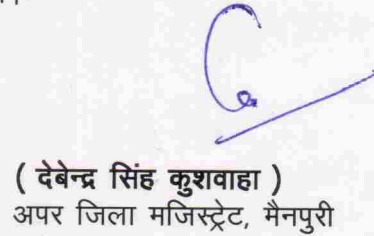 ( देबेन्द्र सिंह कुशवाहा )
अपर जिला मजिस्ट्रेट, मैनपुरी